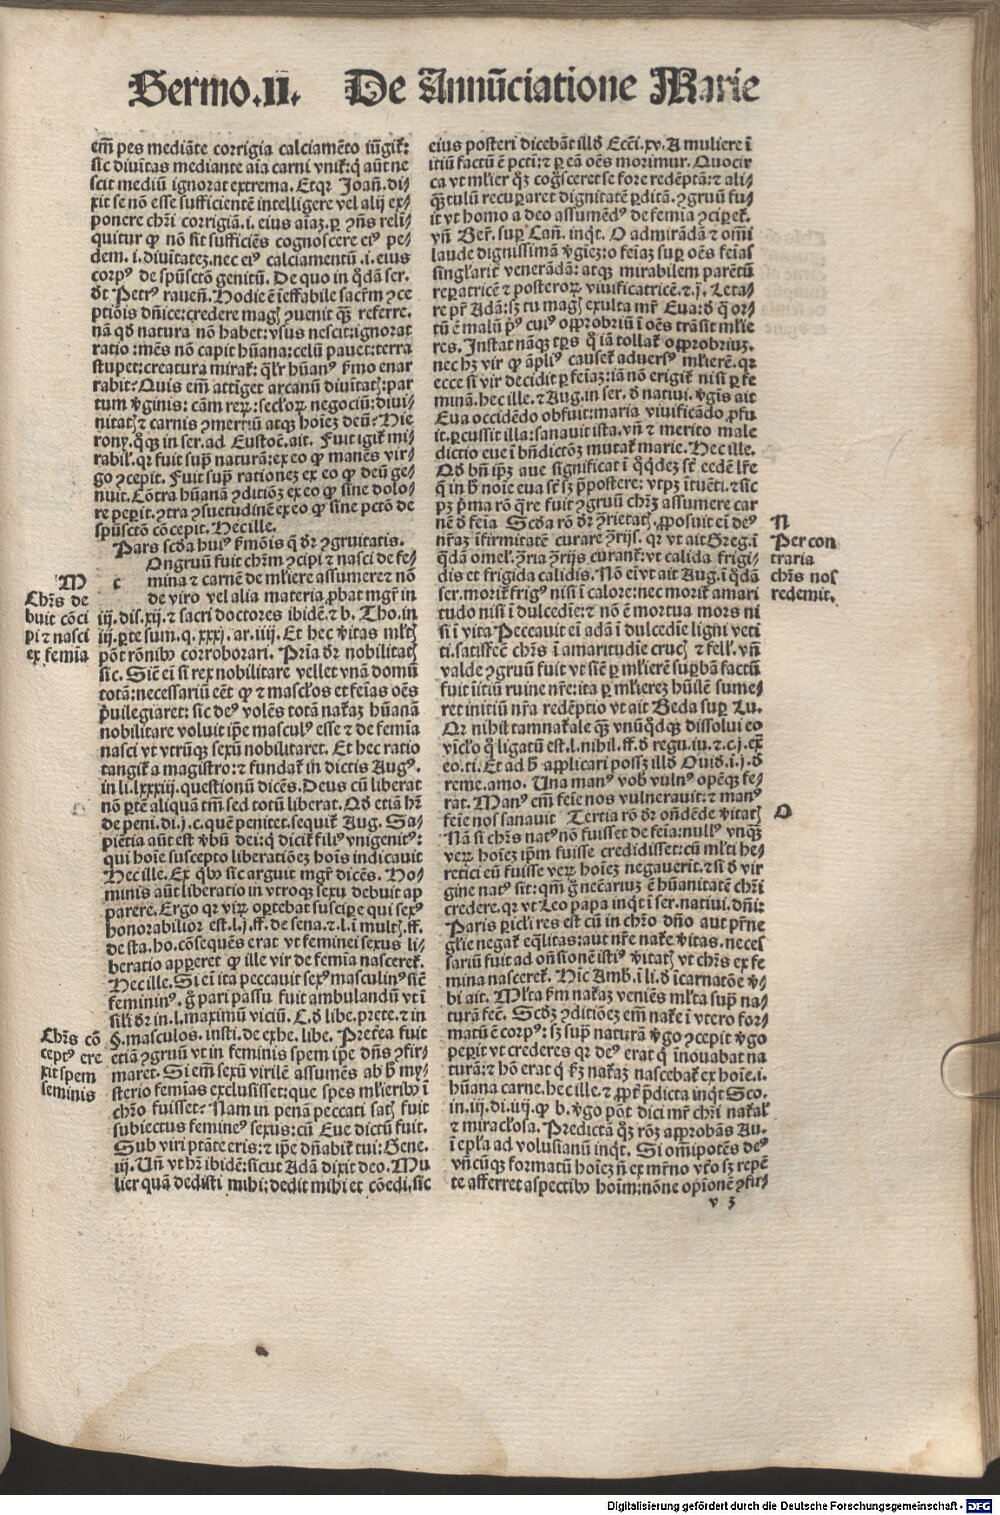 Sermo.II. De Annūciatione Marie
em̄ pes mediāte corrigia calciamēto iūgit᷑:
sic diuītas mediante aīa carni vnit᷑:q̇ aūt ne
scit mediū ignorat extrema. Etqꝛ Joan̄. di⸗
xit se nō esse sufficientē intelligere vel alij ex⸗
ponere chr̄i corrigiā.i. eius aīaꝫ. ꝑ ꝯn̄s relī⸗
quitur ꝙ nō sit sufficiēs cognoscere eiꝰ pe⸗
dem .i. diuītateꝫ. nec eiꝰ calciamentū .i. eius
corpꝰ de spūsctō genitū. De quo in q̇dā ser.
dt̄ Petrꝰ rauen̄. Hodie ē ieffabile sacr̄m ꝯce
ptiōis dn̄ice: credere magꝭ ꝯuenit q̄ꝫ referre.
nā qd̄ natura nō habet: vsus nescit: ignorat
ratio: mēs nō capit hūana: celū pauet: terra
stupet: creatura mirat᷑: q̄lr̄ hūanꝰ ẜmo enar
rabit? Quis em̄ attīget arcanū diuītatꝭ: par
tum v̄ginis: cām reꝝ: secl̄oꝝ negociū: diui⸗
nitatꝭ ⁊ carnis ꝯmerciū atqꝫ hoīeꝫ deū? Hie
rony. q̄ꝫ in ser. ad Eustoc̄. ait. Fuit igit᷑ mi⸗
rabil̓. qꝛ fuit supꝰ naturā: ex eo ꝙ manēs vir⸗
go ꝯcepit. Fuit supꝰ rationeꝫ ex eo ꝙ deū ge⸗
nuit. Cōtra hūanā ꝯditiōꝫ ex eo ꝙ sine dolo⸗
re peperit. ꝯtra ꝯsuetudinē ex eo ꝙ sine pctō de
spūsctō cōcepit. Hec ille.
Pars scd̄a huiꝰ ẜmōis q̄ dr̄ ꝯgruitatis.
c Ongruū fuit chr̄m ꝯcipi ⁊ nasci de fe⸗
mina ⁊ carnē de ml̄iere assumere ⁊ nō
de viro vel alia materia ꝓbat mgr̄ in
iij. dis. xij. ⁊ sacri doctores ibidē. ⁊ b. Tho. in
iij. ꝑte sum. q. xxxj. ar. iiij. Et hec v̄itas ml̄tꝭ
pōt rōnibꝰ corroborari. Pria dr̄ nobilitatꝭ
sic. Sic̄ ei si rex nobilitare vellet vnā domū
totā: necessariū eēt ꝙ ⁊ mascl̄os ⁊ feīas oēs
p̄uilegiaret: sic deꝰ volēs totā nat᷑aꝫ hūanā
nobilitare voluit ip̄e masculꝰ esse ⁊ de femīa
nasci vt vtrūqꝫ sexū nobilitaret. Et hec ratio
tangit᷑ a magistro: ⁊ fundat᷑ in dictis Augꝰ.
in li. lxxxiij. questionū dicēs. Deus cū liberat
nō ꝑtē aliquam tm̄ sed totū liberat. Qd̄ etiā hr̄
de peni. di. j. c. quē penitet. sequit᷑ Aug. Sa⸗
piētia aūt est v̄bū dei: q̇ dicit᷑ filiꝰ vnigenitꝰ:
qui hoīe suscepto liberatiōeꝫ hoīs indicauit
Hec ille. Ex qͦbꝰ sic arguit mgr̄ dicēs. Ho⸗
minis aūt liberatio in vtroqꝫ sexu debuit ap
parere. Ergo qꝛ viꝝ oꝑtebat suscipere qui sexꝰ
honorabilior est. l. j. ff. de sena. ⁊. l. ī multꝭ. ff.
de sta. ho. cōsequēs erat vt feminei sexus li⸗
beratio apꝑeret ꝙ ille vir de femīa nascere᷑t.
Hec ille. Si ei ita peccauit sexꝰ masculinꝰ sic̄
femininꝰ. ḡ pari passu fuit ambulandū vt ī
sil̓i dr̄ in. l. maximū viciū. C. d̄ libe. prete. ⁊ in
§. masculos. insti. de exhe. libe. Pret̄ea fuit
etiā ꝯgruū vt in feminis spem ip̄e dn̄s ꝯfir⸗
maret. Si em̄ sexū virilē assumēs ab h̄ my⸗
sterio femīas exclusisset: que spes ml̄ieribꝰ ī
chr̄o fuisset? Nam in penā peccati satꝭ fuit
subiectus femineꝰ sexus: cū Eue dictū fuit.
Sub viri ptāte eris: ⁊ ip̄e dn̄abit᷑ tui: Gene.
iij. Un̄ vt hr̄ ibidē: sicut Adā dixit deo. Mu
lier quā dedisti mihi: dedit mihi et cōedi. sic
M
Chr̄s de
buit cōci
pi ⁊ nasci
ex femīa
Chr̄s cō
ceptꝰ ere
xit spem
feminis
eius posteri dicebāt illd̄ Ecc̄i. xv. A muliere ī
itiū factū ē pcti: ⁊ ꝑ eā oēs morimur. Quocir
ca vt ml̄ier q̄ꝫ cog̓sceret se fore redēptā: ⁊ ali⸗
q̄ꝫtulū recuꝑaret dignitatē ꝑditā. ꝯgruū fu⸗
it vt homo a deo assumēdꝰ de femīa ꝯciperet᷑.
vn̄ Ber̄. suꝑ Can̄. inqͥt. O admirādā ⁊ om̄i
laude dignissimā v̄gieꝫ: o feīaꝫ suꝑ oēs feīas
singl̄arit᷑ venerādā: atqꝫ mirabilem parētū
reꝑatricē ⁊ posteroꝝ viuificatricē. ⁊. j. Leta⸗
re pr̄ Adā: sꝫ tu magꝭ exulta mr̄ Eua: d̄ q̇ or⸗
tū ē malū pͥꝰ cuiꝰ opprobriū ī oēs trāsit ml̄ie
res. Instat nāqꝫ tꝑs q̇ iā tollat᷑ opprobriuꝫ.
nec hꝫ vir ꝙ apliꝰ causet᷑ aduersꝰ ml̄ierē. qꝛ
ecce si vir decidit ꝑ feīaꝫ: iā nō erigit᷑ nisi ꝑ fe
minā. hec ille. ⁊ Aug. in ser. d̄ natiui. v̄gīs ait
Eua occidēdo obfuit: maria viuificādo ꝓfu
it. ꝑcussit illa: sanauit ista. vn̄ ⁊ merito male
dictio eue ī bn̄dictōꝫ mutat᷑ marie. Hec ille.
Qd̄ bn̄ ip̄ꝫ aue significat ī q̇qͥdeꝫ st̄ eedē lr̄e
q̄ in h̄ noīe eua st̄ sꝫ p̄postere: vtpꝫ ītuēti. ⁊ sic
pꝫ pͥma rō q̄re fuit ꝯgruū chr̄ꝫ assumere car
nē d̄ feīa Scd̄a rō dr̄ ꝯrietatꝭ. ꝓposuit ei deꝰ
nr̄aꝫ īfirmitatē curare ꝯrijs. qꝛ vt ait Greg. ī
q̇dā omel̓. ꝯria ꝯrijs curant᷑: vt calida frigi⸗
dis et frigida calidis. Nō ei vt ait Aug. ī q̇dā
ser. morit᷑ frigꝰ nisi ī calore: nec morit᷑ amari
tudo nisi ī dulcedie: ⁊ nō ē mortua mors ni
si ī vita Peccauit ei adā ī dulcedie ligni veti
ti. satisfec̄ chr̄s ī amaritudie crucꝭ ⁊ fell̓. vn̄
valde ꝯgruū fuit vt sic̄ ꝑ ml̄ierē suꝑbā factū
fuit īitiū ruine nr̄e: ita ꝑ ml̄iereꝫ hūilē sume⸗
ret initiū nr̄a redēptio vt ait Beda suꝑ Lu.
Qꝛ nihil tam nat᷑ale q̄ꝫ vnūq̇dqꝫ dissolui eo
vīcl̄o q̇ ligatū est. l. nihil. ff. d̄ regu. iu. ⁊. c. j. ex̄
eo. ti. Et ad h̄ applicari possꝫ illd̄ Ouid. ī. j. d̄
reme. amo. Una manꝰ vob̓ vulnꝰ opēqꝫ fe⸗
rat. Manꝰ em̄ feīe nos vulnerauit: ⁊ manꝰ
feīe nos sanauit Tertia rō dr̄ on̄dēde v̄itatꝭ
Nā si chr̄s natꝰ nō fuisset de feīa: nullꝰ vnqͣꝫ
veꝝ hoīeꝫ ip̄m fuisse credidisset: cū ml̄ti he⸗
retici eū fuisse veꝝ hoīeꝫ negauerīt. ⁊ si d̄ vir
gine natꝰ sit: qm̄ ḡ nec̄ariuꝫ ē hūanitatē chr̄i
credere. qꝛ vt Leo papa inqͥt ī ser. natiui. dn̄i:
Paris ꝑicl̄i res est cū in chr̄o dn̄o aut pr̄ne
gl̄ie negat᷑ eq̄litas: aut nr̄e nat᷑e v̄itas. neces
sariū fuit ad on̄sionē istiꝰ v̄itatꝭ vt chr̄s ex fe
mina nasceret᷑. Hic Amb. ī li. d̄ īcarnatōe v̄⸗
bi ait. Ml̄ta ẜm nat᷑aꝫ veniēs ml̄ta supꝰ na⸗
turā fec̄. Scd̄ꝫ ꝯditiōeꝫ em̄ nat᷑e ī vtero for⸗
matū ē corpꝰ: sꝫ supꝰ naturā v̄go ꝯcepit v̄go
peꝑit vt crederes qꝛ deꝰ erat q̇ īnouabat na
turā: ⁊ hō erat q̇ ẜꝫ nat᷑aꝫ nascebat᷑ ex hoīe. i.
hūana carne. hec ille. ⁊ ꝓpt᷑ p̄dicta inqͥt Sco.
in. iij. di. iiij. ꝙ b. v̄go pōt dici mr̄ chr̄i nat᷑al̓
⁊ miracl̄osa. Predictā q̄ꝫ rōꝫ approbās Au.
ī epl̄a ad volusianū inqͥt. Si om̄ipotēs deꝰ
vn̄cūqꝫ formatū hoīeꝫ n̄ ex mr̄no vt̄o sꝫ repē
te afferret aspectibꝰ hoīm: nōne opīonē ꝯfir⸗
N
Per con
traria
chr̄s nos
redemit.
O
v 3
Digitalisierung gefördert durch die Deutsche Forschungsgemeinschaft - DFG